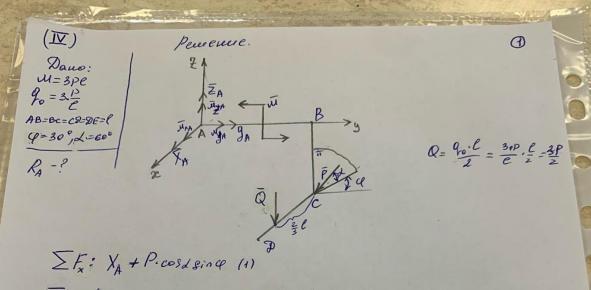 (IV)
Дано:
M=3Pl
q₀=3P/l
AB=BC=CD=DE=l
φ=30°, α=60°
R_A-?
Решение.
①
z
Z̄_A
M̄
B
y
A
X̄_A
x
P̄
φ
C
Q̄
2/3 l
D
Q = q₀·l/2 = 3P/l · l/2 = 3P/2
∑F_x: X_A + P·cosα sinφ (1)